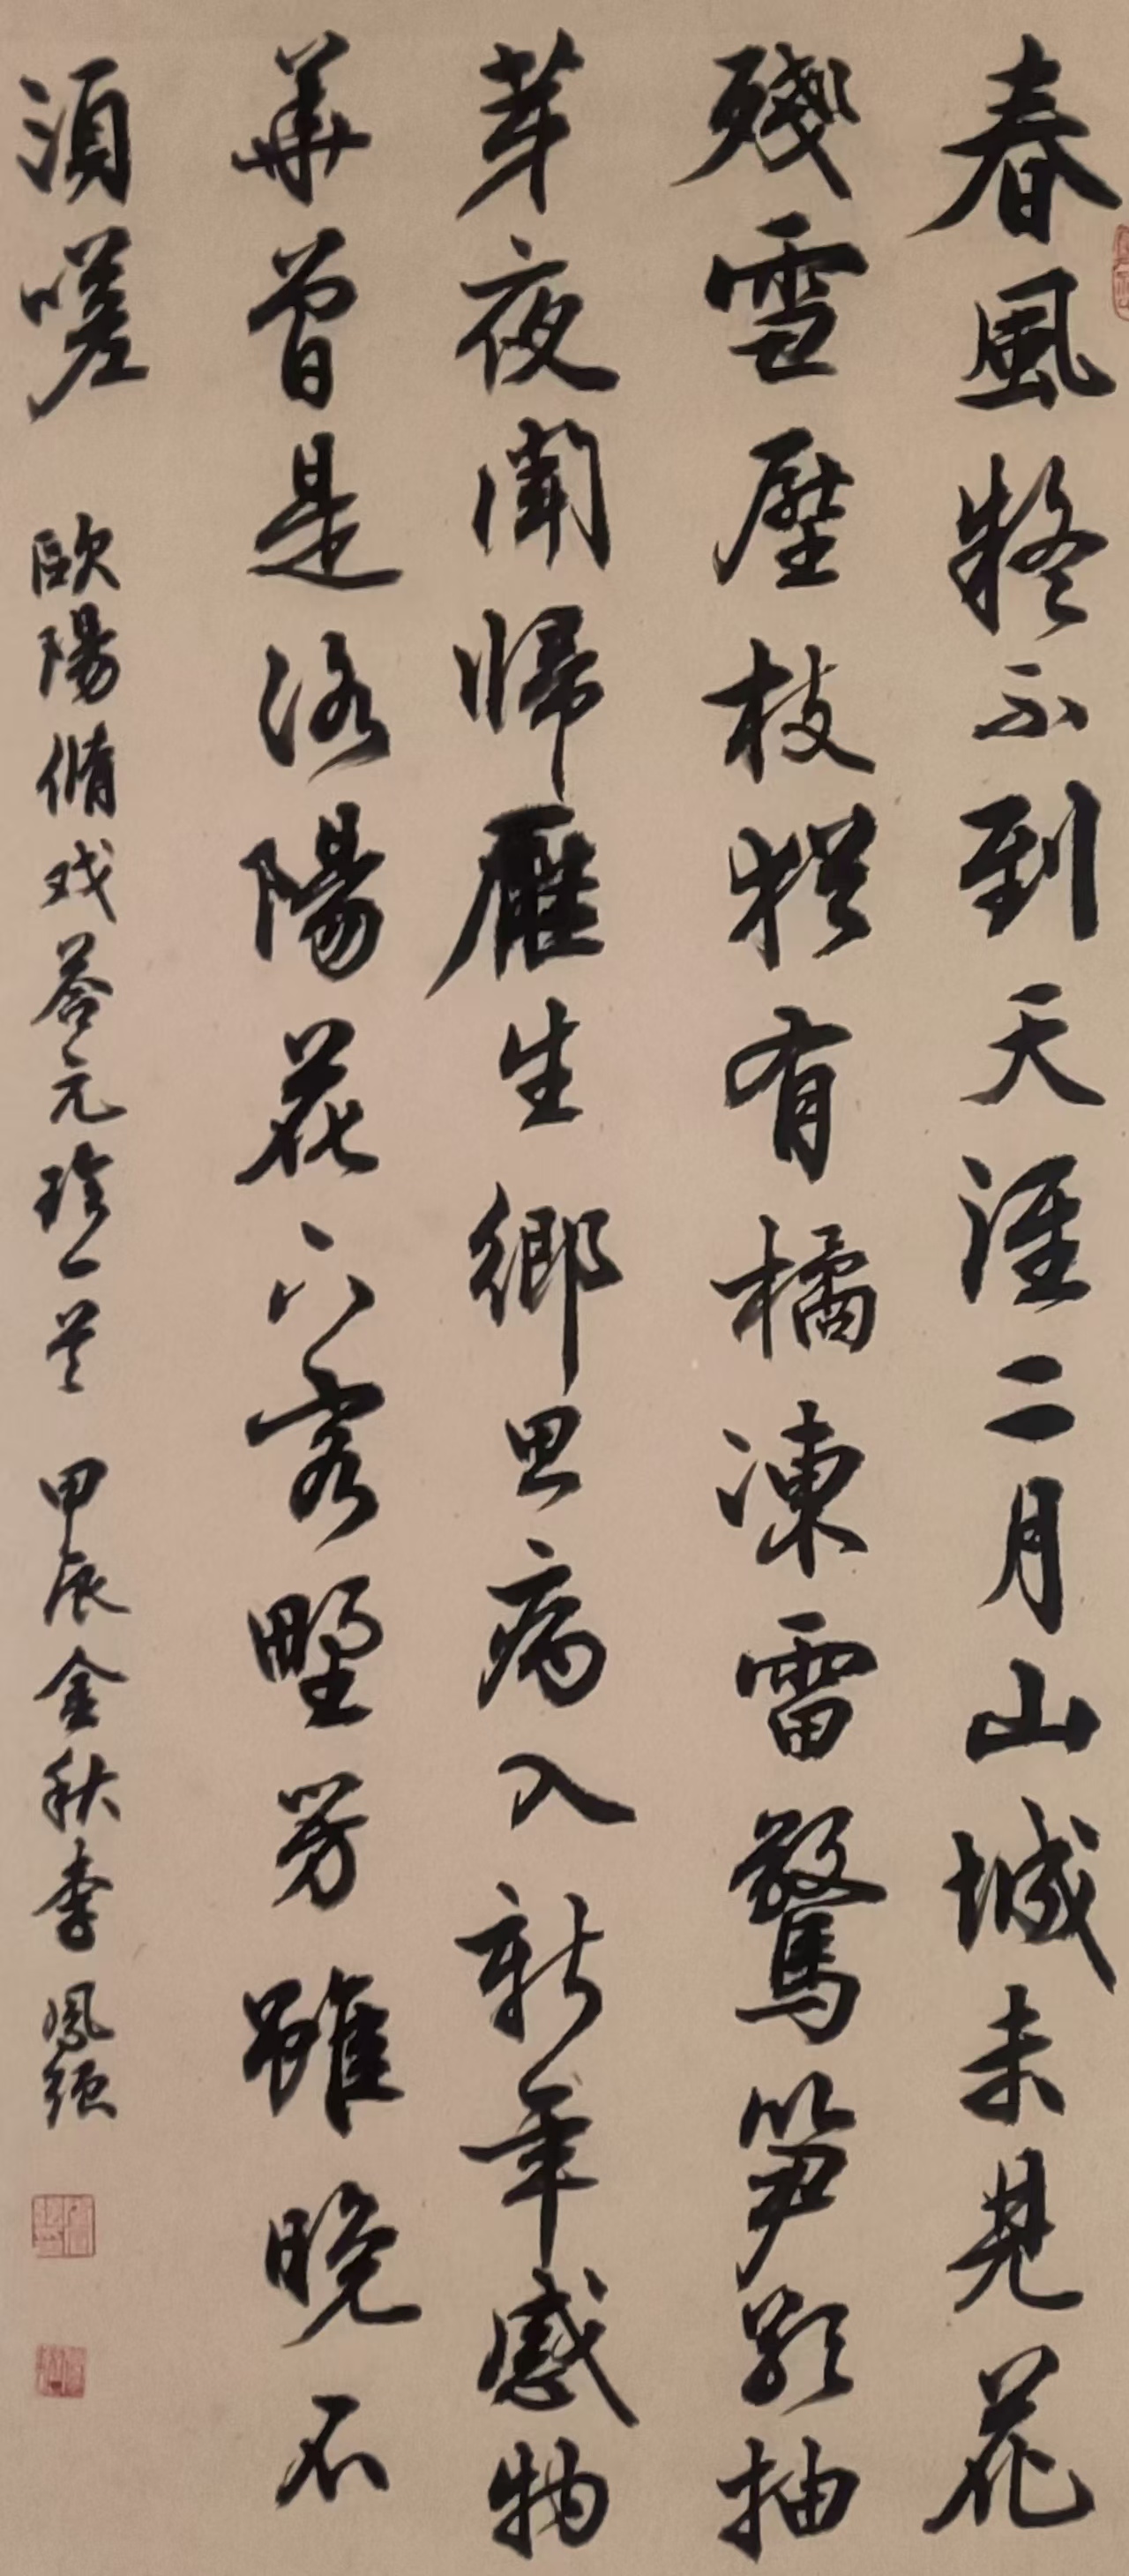 春風疑不到天涯二月山城未見花
殘雪壓枝猶有橘凍雷驚筍欲抽
芽夜聞歸雁生鄉思病入新年感物
華曾是洛陽花下客野芳雖晚不
須嗟 歐陽脩戏答元珍一首 甲辰金秋李鳳强